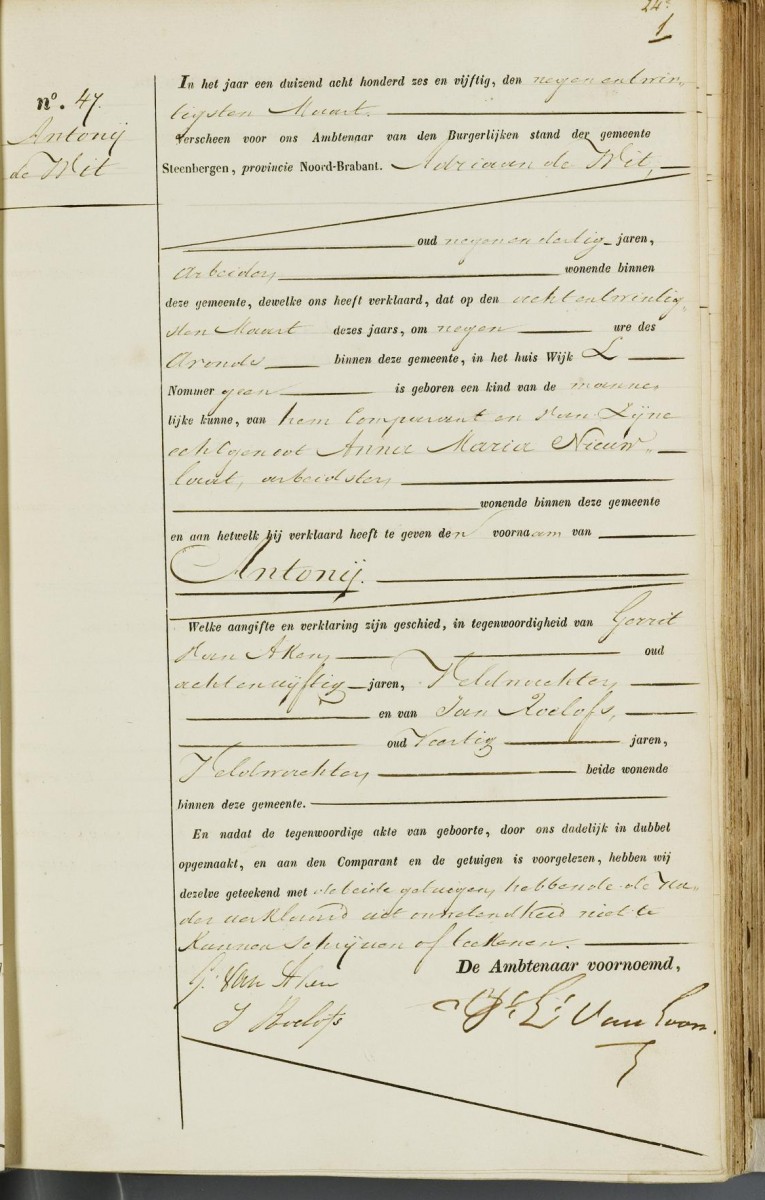 24
1
nº. 47.
Antonij
de Wit
In het jaar een duizend acht honderd zes en vijftig, den negenentwin„
tigsten Maart.
Verscheen voor ons Ambtenaar van den Burgerlijken stand der gemeente
Steenbergen, provincie Noord-Brabant. Adriaan de Wit,
oud negenendertig jaren,
Arbeider, wonende binnen
deze gemeente, dewelke ons heeft verklaard, dat op den achtentwintig„
sten Maart dezes jaars, om negen ure des
Avonds binnen deze gemeente, in het huis Wijk L
Nommer geen is geboren een kind van de manne„
lijke kunne, van hem Comparant en van Zijne
echtgenoot Anna Maria Nieuw„
laat, arbeidster,
wonende binnen deze gemeente
en aan hetwelk hij verklaard heeft te geven den voornaam van
Antonij.
Welke aangifte en verklaring zijn geschied, in tegenwoordigheid van Gerrit
van Aken, oud
achtenvijftig jaren, Veldwachter,
en van Jan Roelofs,
oud Veertig jaren,
Veldwachter, beide wonende
binnen deze gemeente.
En nadat de tegenwoordige akte van geboorte, door ons dadelijk in dubbel
opgemaakt, en aan den Comparant en de getuigen is voorgelezen, hebben wij
dezelve geteekend met de beide getuigen, hebbende de Va„
der verklaard uit onkunde niet te
kunnen schrijven of teekenen.
De Ambtenaar voornoemd,
G. van Aken
J Roelofs
van Loon.